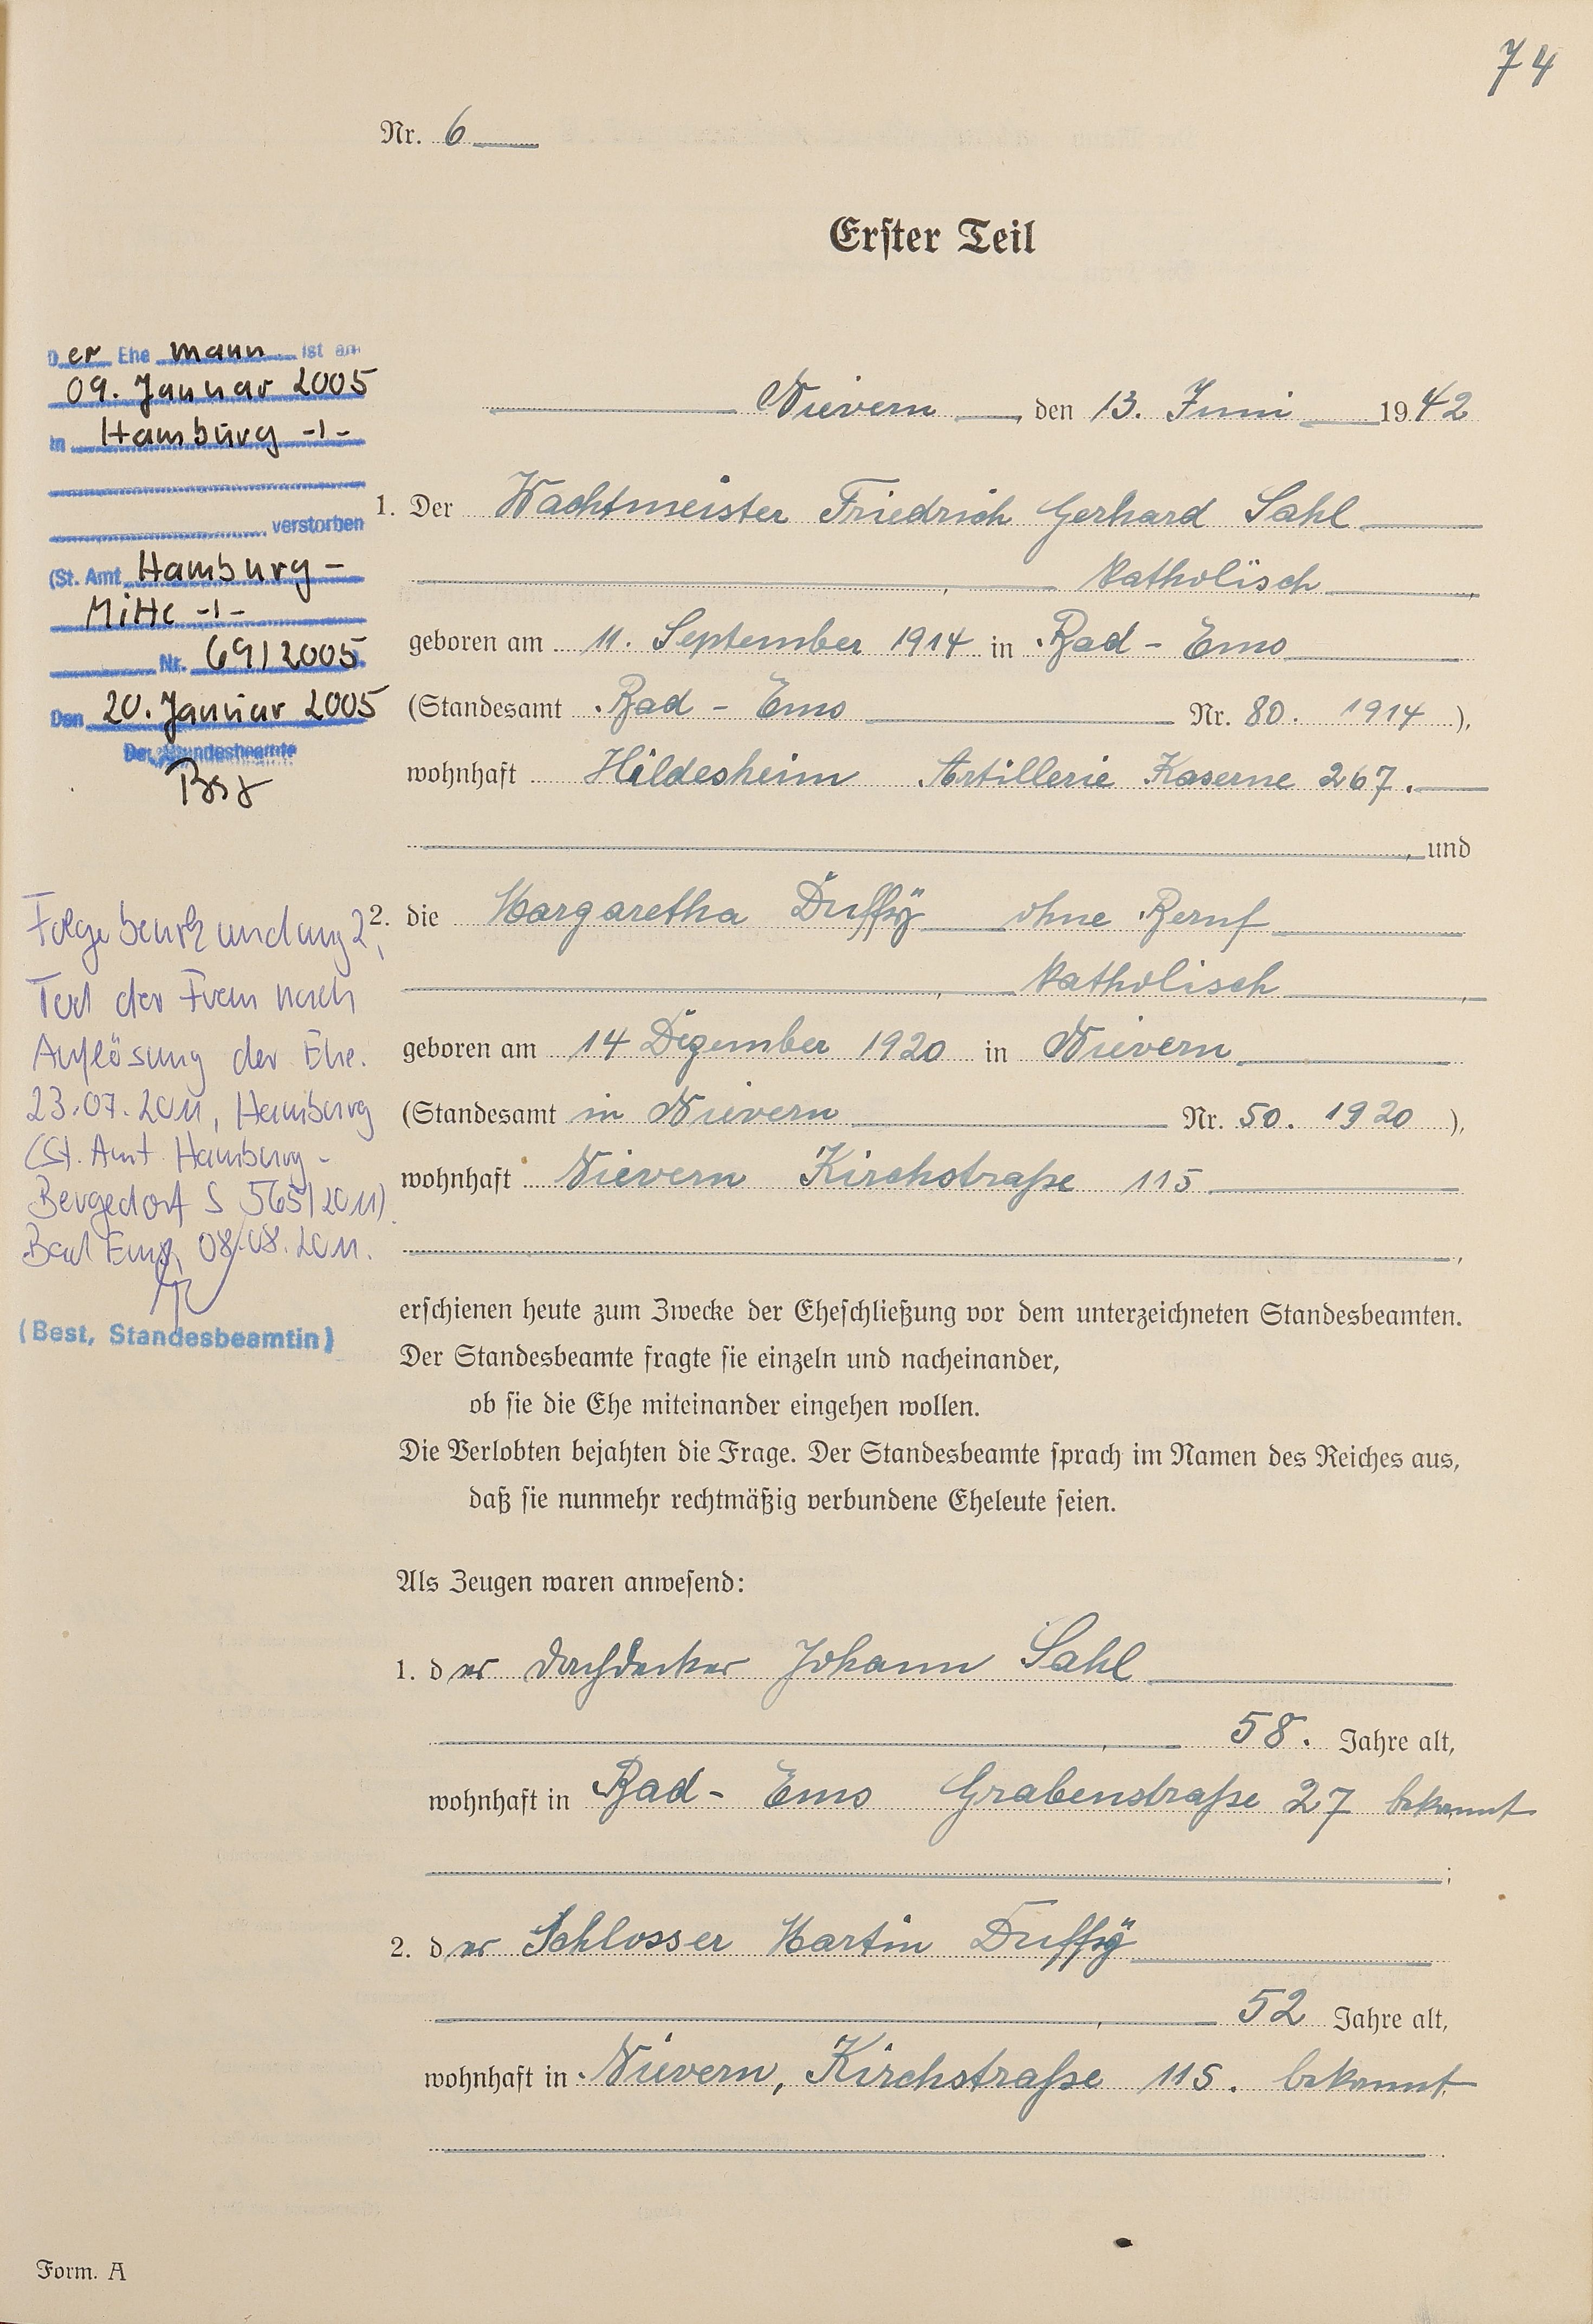 74
Nr. 6
Erster Teil
Nievern, den 13. Juni 1942
1. Der Wachtmeister Friedrich Gerhard Sahl
, katholisch,
geboren am 11. September 1914 in Bad-Ems
(Standesamt Bad-Ems Nr. 80. 1914),
wohnhaft Hildesheim Artillerie Kaserne 267.
, und
2. die Margaretha Duffÿ ohne Beruf
, katholisch,
geboren am 14 Dezember 1920 in Nievern
(Standesamt in Nievern Nr. 50. 1920),
wohnhaft Nievern Kirchstraße 115
,
erschienen heute zum Zwecke der Eheschließung vor dem unterzeichneten Standesbeamten.
Der Standesbeamte fragte sie einzeln und nacheinander,
ob sie die Ehe miteinander eingehen wollen.
Die Verlobten bejahten die Frage. Der Standesbeamte sprach im Namen des Reiches aus,
daß sie nunmehr rechtmäßig verbundene Eheleute seien.
Als Zeugen waren anwesend:
1. der Dachdecker Johann Sahl
, 58. Jahre alt,
wohnhaft in Bad-Ems Grabenstraße 27 bekannt
;
2. der Schlosser Martin Duffÿ
, 52 Jahre alt,
wohnhaft in Nievern, Kirchstraße 115. bekannt
.
Der Ehemann ist am
09. Januar 2005
in Hamburg -/-
verstorben
(St. Amt Hamburg-
Mitte -/-
Nr. 69/2005
Den 20. Januar 2005
Der Standesbeamte
Folgebeurkundung 2,
Tod der Frau nach
Auflösung der Ehe.
23.07.2011, Hamburg
(St. Amt Hamburg-
Bergedorf S 565/2011)
Bad Ems, 08.08.2011.
(Best, Standesbeamtin)
Form. A